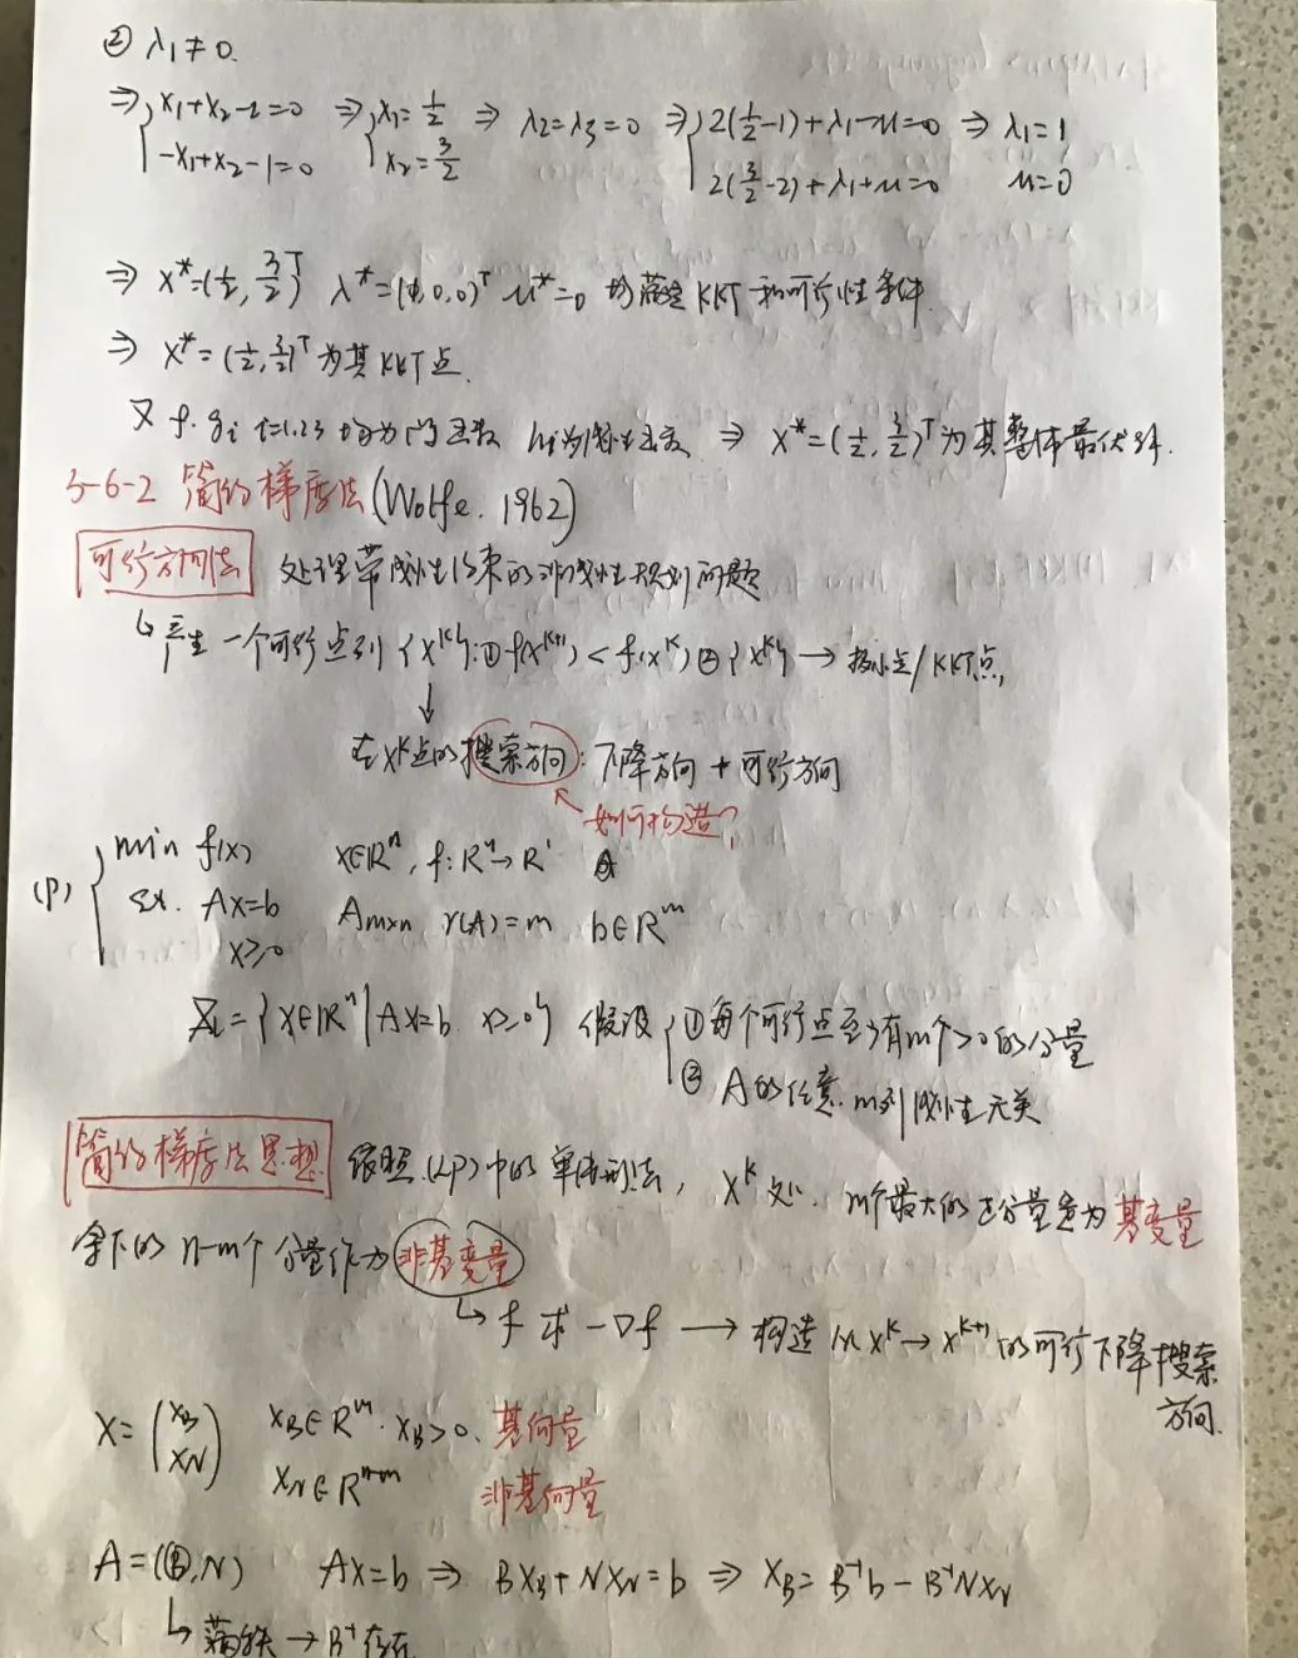 ② λ₁≠0.
⇒ { x₁+x₂-2=0 ⇒ { x₁=1/2 ⇒ λ₂=λ₃=0 ⇒ { 2(1/2-1)+λ₁-μ=0 ⇒ λ₁=1
-x₁+x₂-1=0 x₂=3/2 2(3/2-2)+λ₁+μ=0 μ=0
⇒ x*=(1/2, 3/2)ᵀ λ*=(1,0,0)ᵀ μ*=0 均满足KKT和可行性条件.
⇒ x*=(1/2, 3/2)ᵀ为其KKT点.
又 f. gᵢ i=1.2.3 均为凸函数 h为线性函数 ⇒ x*=(1/2, 3/2)ᵀ为其整体最优解.
5-6-2 简约梯度法(Wolfe. 1962)
可行方向法 处理带线性约束的非线性规划问题
↳ 产生一个可行点列{xᴷ}:① f(xᴷ⁺¹) < f(xᴷ) ② {xᴷ} → 极小点/KKT点,
↓
在xᴷ点的搜索方向: 下降方向 + 可行方向
↖ 如何构造?
(P) { min f(x) x∈Rⁿ, f: Rⁿ→R¹
s.t. Ax=b Aₘₓₙ r(A)=m b∈Rᵐ
x≥0
={x∈Rⁿ|Ax=b. x≥0} 假设 { ①每个可行点至少有m个>0的分量
② A的任意m列线性无关
简约梯度法思想 依照(LP)中的单纯形法, xᴷ处. m个最大的正分量定为基变量
余下的n-m个分量作为非基变量
↳ f 求 -∇f → 构造从xᴷ→xᴷ⁺¹的可行下降搜索
方向.
x=(x_B x_N) x_B∈Rᵐ. x_B>0. 基向量
x_N∈Rⁿ⁻ᵐ 非基向量
A=(B,N) Ax=b ⇒ Bx_B+Nx_N=b ⇒ x_B=B⁻¹b-B⁻¹Nx_N
↳ 满秩 → B⁻¹存在